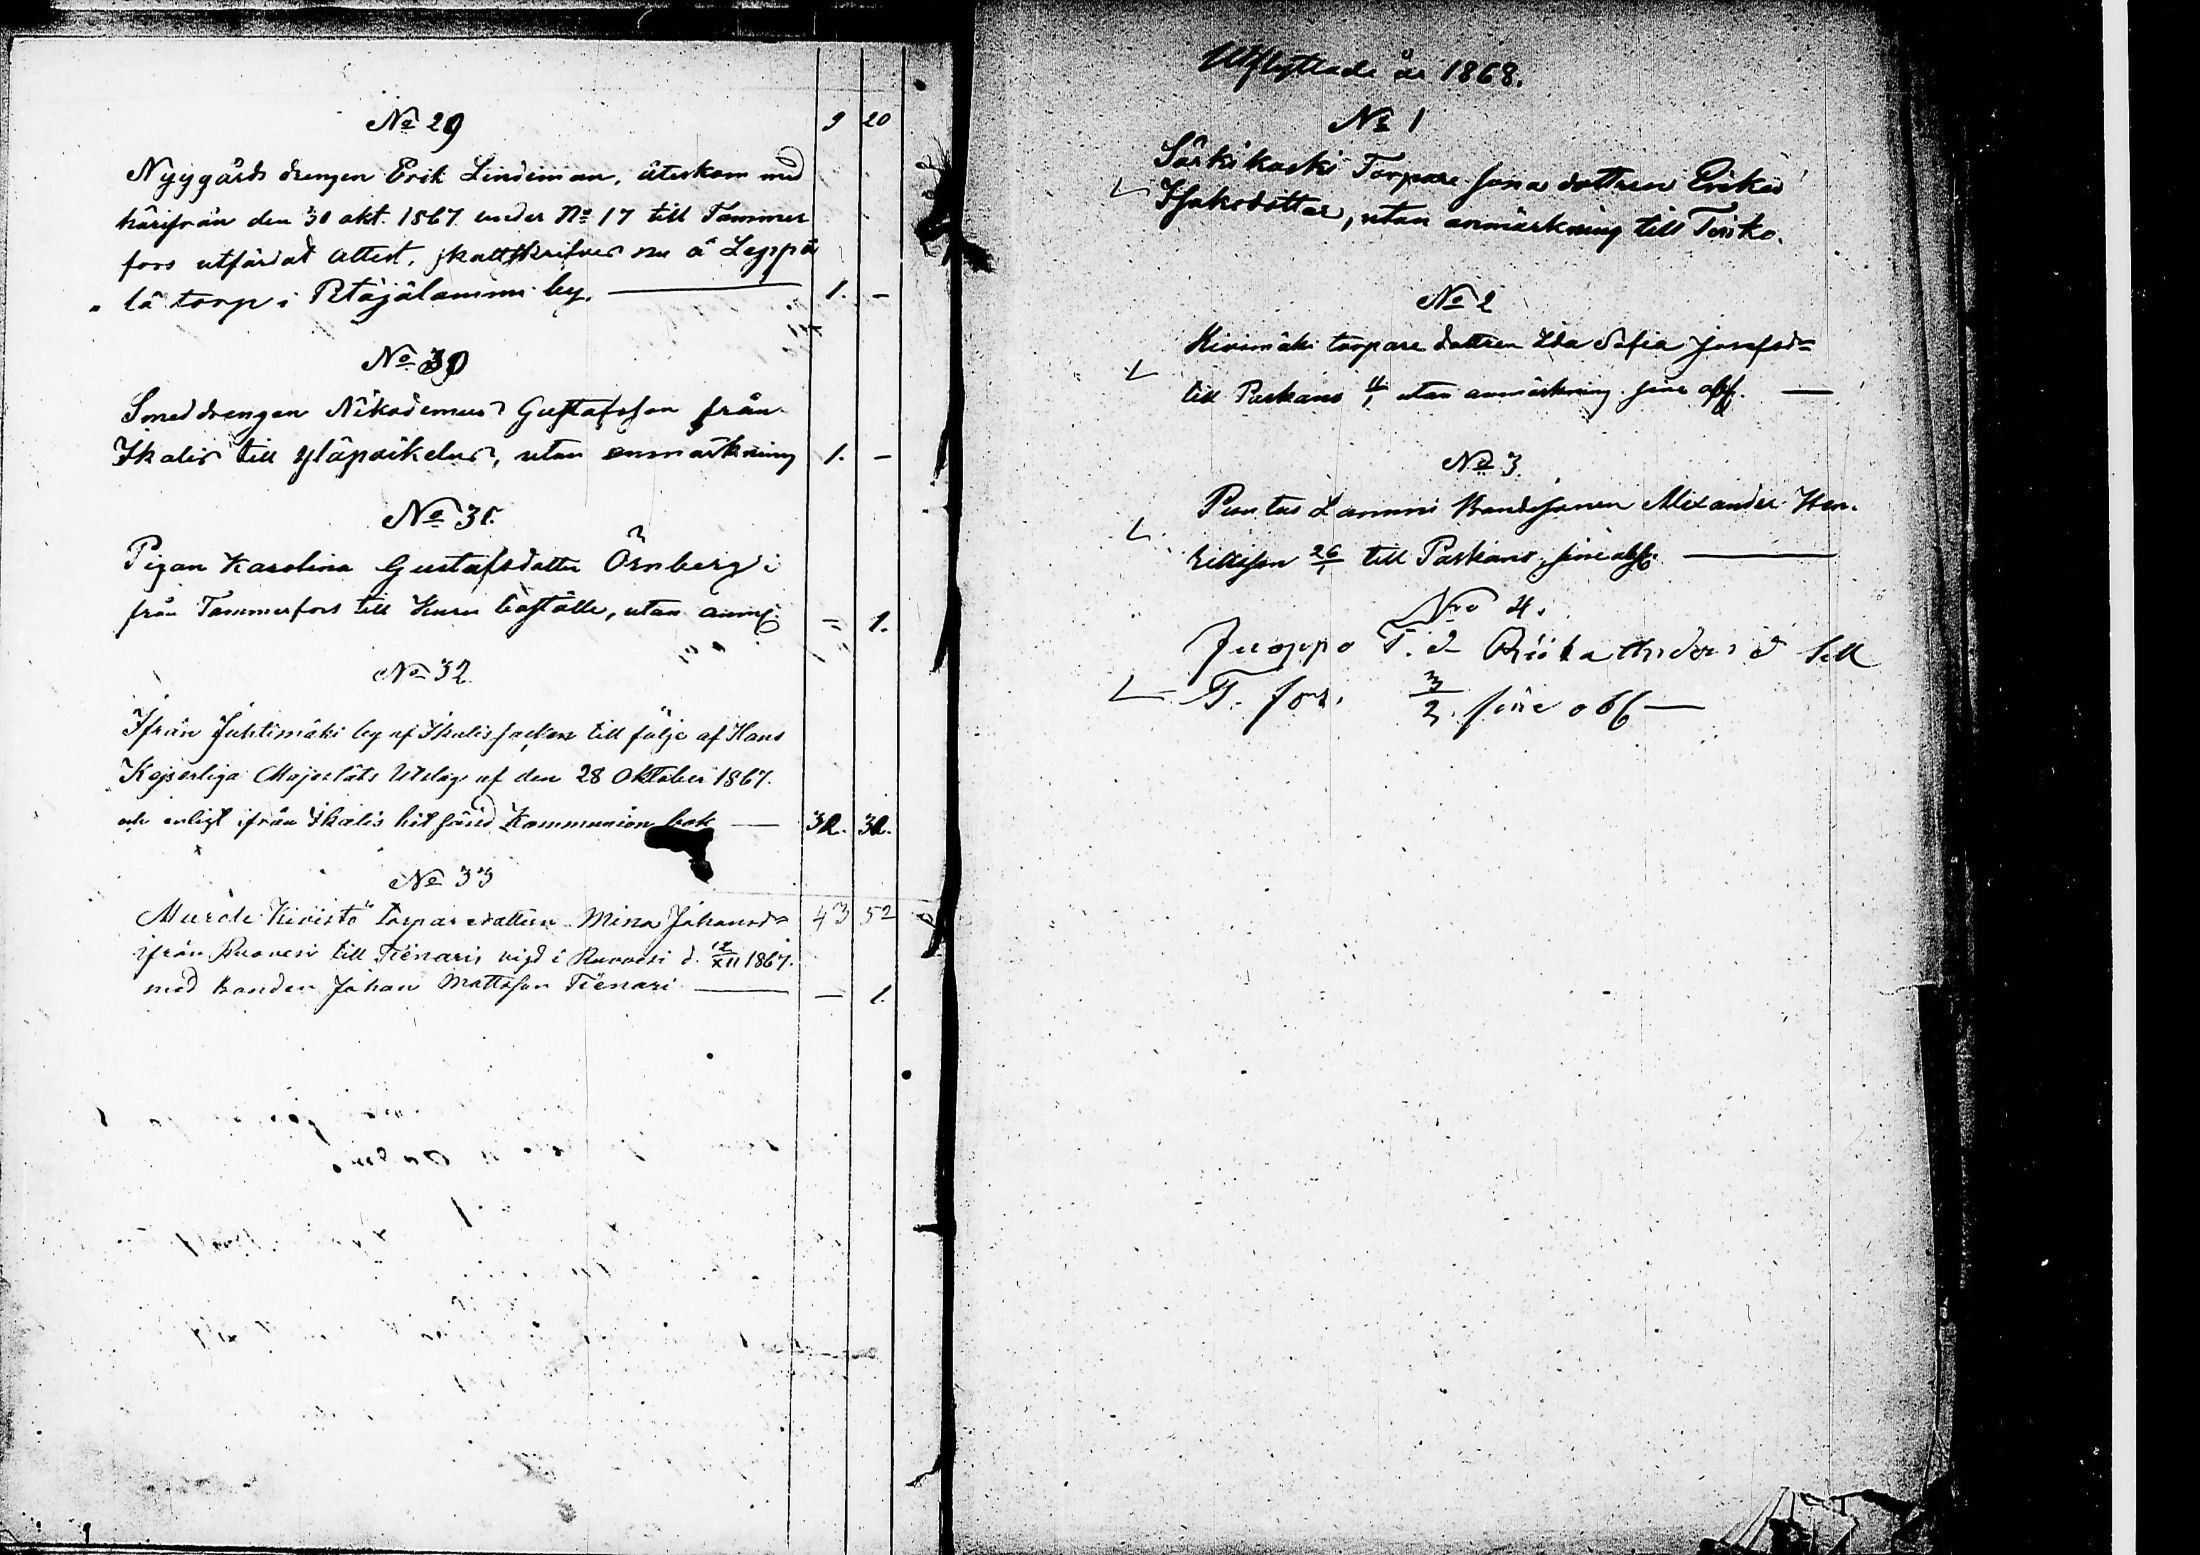 No 29
9 20
Nygårds drengen Erik Lindeman, återkom med
härifrån den 30 okt. 1867 under No 17 till Tammer
fors utfärdad attest, skattskrifves nu å Leppä
lä torp i Petäjälammi by. 1. -
No 30
Smeddrengen Nikodemus Gustafsson från
Ikalis till Yläpoikelus, utan anmärkning 1. -
No 31.
Pigan Karolina Gustafsdotter Örnberg i
från Tammerfors till Kuru boställe, utan anm. = 1.
No 32
Ifrån Juhtimäki by af Ikalis socken till följe af Hans
Kejserliga Majestäts Utslag af den 28 Oktober 1867.
och enligt ifrån Ikalis hitsänd Kommunion bok 32. 32.
No 33
Murole Kivistö torparedottren Mina Johansd=
43 52
ifrån Ruovesi till Tienari, vigd i Ruovesi d. 12/XII 1867.
med bonden Johan Mattsson Tienari - 1.
Utflyttade år 1868.
No 1
Särkikoski Torpare sona dottren Erika
Isaksdotter, utan anmärkning till Teisko.
No 2
Kivimäki torpare dottren Ida Sofia Josefsd=
till Parkano 11/1 utan anmärkning sine obs.
No 3
Puntus Lammi Bondsonen Alexander Hen.
riksson 26/1 till Parkano, sine obs.
No 4.
Juoppo T. d Anders d till
T. fors. 3/2. sine obs